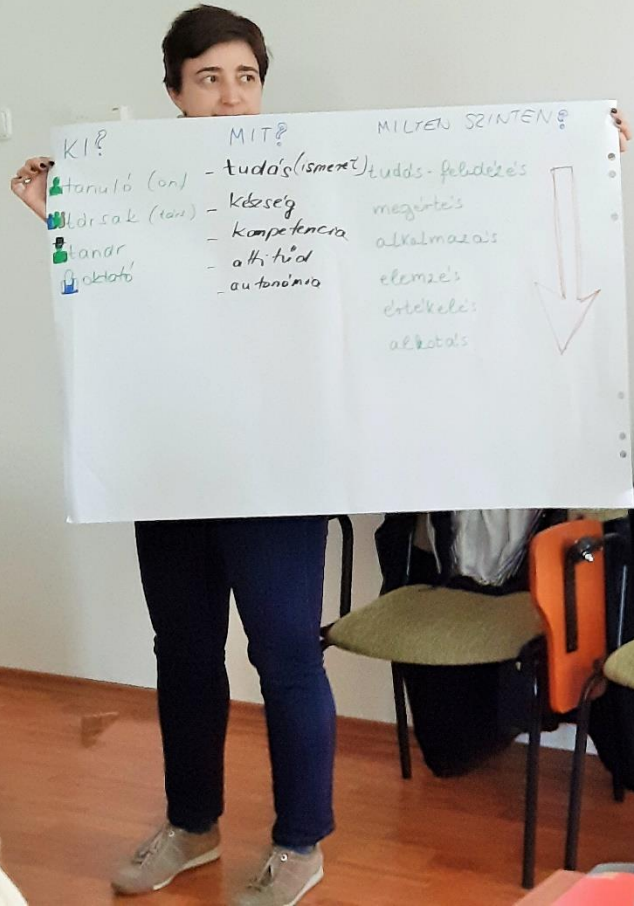 KI?
tanuló (ön)
társak (társ)
tanár
oktató
MIT?
- tudás (ismeret)
- készség
- kompetencia
- attitűd
- autonómia
MILYEN SZINTEN?
tudás - felidézés
megértés
alkalmazás
elemzés
értékelés
alkotás